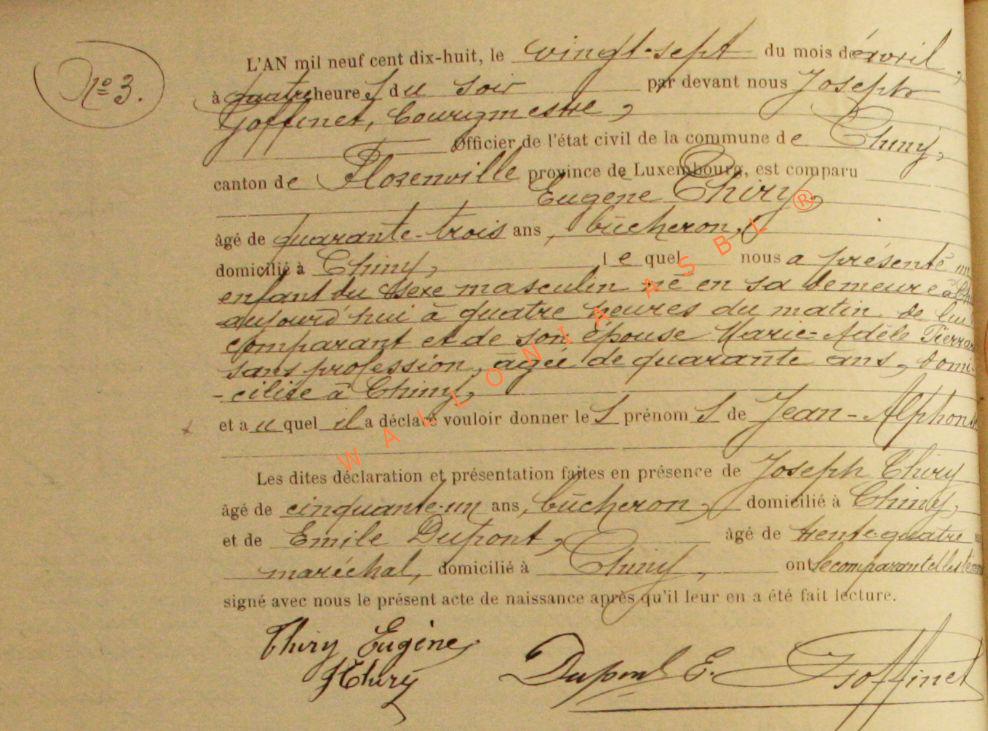 N° 3.
L'AN mil neuf cent dix-huit, le vingt-sept du mois d'avril,
à quatre heures du soir par devant nous Joseph
Goffinet, bourgmestre,
Officier de l'état civil de la commune de Chiny,
canton de Florenville province de Luxembourg, est comparu
Eugène Thiry,
âgé de quarante-trois ans, bûcheron,
domicilié à Chiny, lequel nous a présenté un
enfant du sexe masculin né en sa demeure à
aujourd'hui à quatre heures du matin, de lui
comparant et de son épouse Marie-Adèle Pierrar
sans profession, âgée de quarante ans, domi-
-ciliée à Chiny,
et auquel il a déclaré vouloir donner les prénoms de Jean-Alphons
Les dites déclaration et présentation faites en présence de Joseph Thiry
âgé de cinquante-un ans, bûcheron, domicilié à Chiny,
et de Emile Dupont, âgé de trente-quatre
maréchal, domicilié à Chiny, ont le comparant et les tem
signé avec nous le présent acte de naissance après qu'il leur en a été fait lecture.
Thiry Eugène
J Thiry
Dupont E. Goffinet
WALLONIA ASBL ®